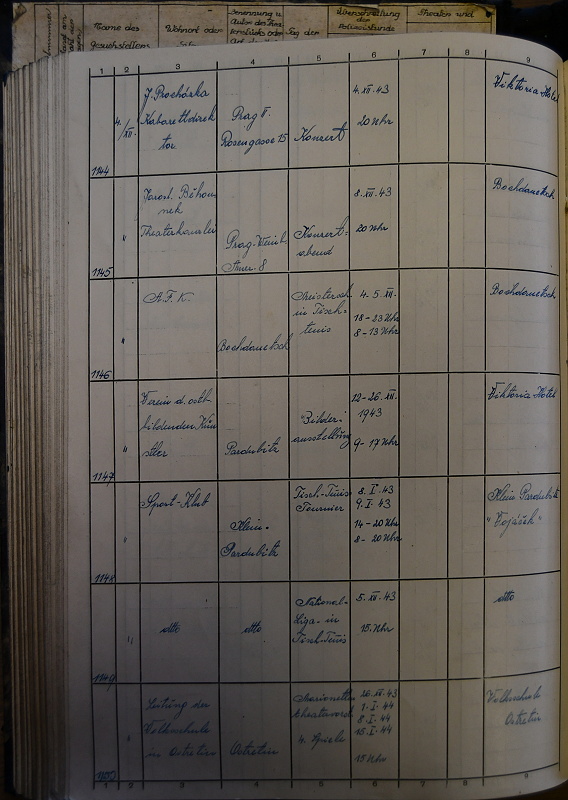 Name des
Gesuchstellers
Wohnort oder
Tag der
der
Polizeistunde
Theater und
1 2 3 4 5 6 7 8 9
1144
4./XII.
J. Procházka
Kabarettdirek
tor
Prag II.
Rosengasse 15
Konzert
4. XII. 43
20 Uhr
Viktoria Hotel
1145
"
Jarosl. Běhou
nek
Theaterkanzlei
Prag-
8
Konzert-
abend
8. XII. 43
20 Uhr
Bochdanetsch
1146
"
A.F.K.
Bochdanetsch
Meistersch.
in Tisch-
tenis
4. 5. XII.
18-23 Uhr
8-13 Uhr
Bochdanetsch
1147
"
Verein d. ostb.
bildenden Kün
stler
Pardubitz
Bilder-
ausstellung
12-26. XII.
1943
9-17 Uhr
Viktoria Hotel
1148
"
Sport-Klub
Klein-
Pardubitz
Tisch-Tenis
Tournier
8. I. 43
9. I. 43
14-20 Uhr
8-20 Uhr
Klein Pardubitz
" Vojáček "
1149
"
dtto
dtto
National-
Liga- in
Tisch-Tenis
5. XII. 43
15. Uhr
dtto
1150
"
Leitung der
Volksschule
in Ostretin
Ostretin
Marionetten
theatervorst.
4. Spiele
26. XII. 43
1. I. 44
8. I. 44
15. I. 44
15 Uhr
Volksschule
Ostretin
1 2 3 4 5 6 7 8 9